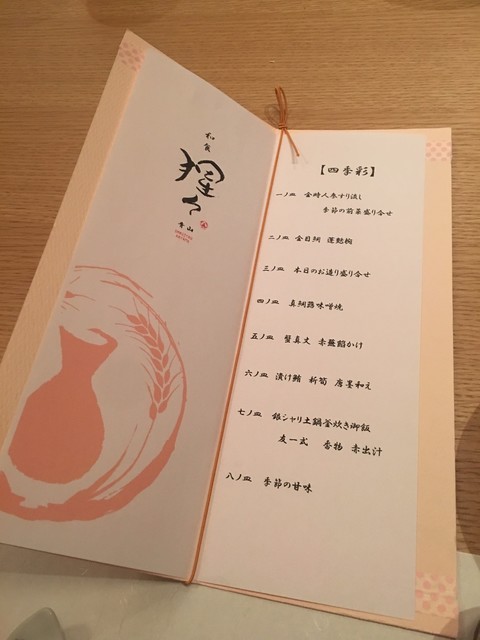 和食
猩々
青山
【四季彩】
一ノ皿 金時人参すり流し
季節の前菜盛り合せ
二ノ皿 金目鯛 蓮麩椀
三ノ皿 本日のお造り盛り合せ
四ノ皿 真鯛蕗味噌焼
五ノ皿 蟹真丈 赤蕪餡かけ
六ノ皿 漬け鮪 新筍 唐墨和え
七ノ皿 銀シャリ土鍋釜炊き御飯
友一式 香物 赤出汁
八ノ皿 季節の甘味